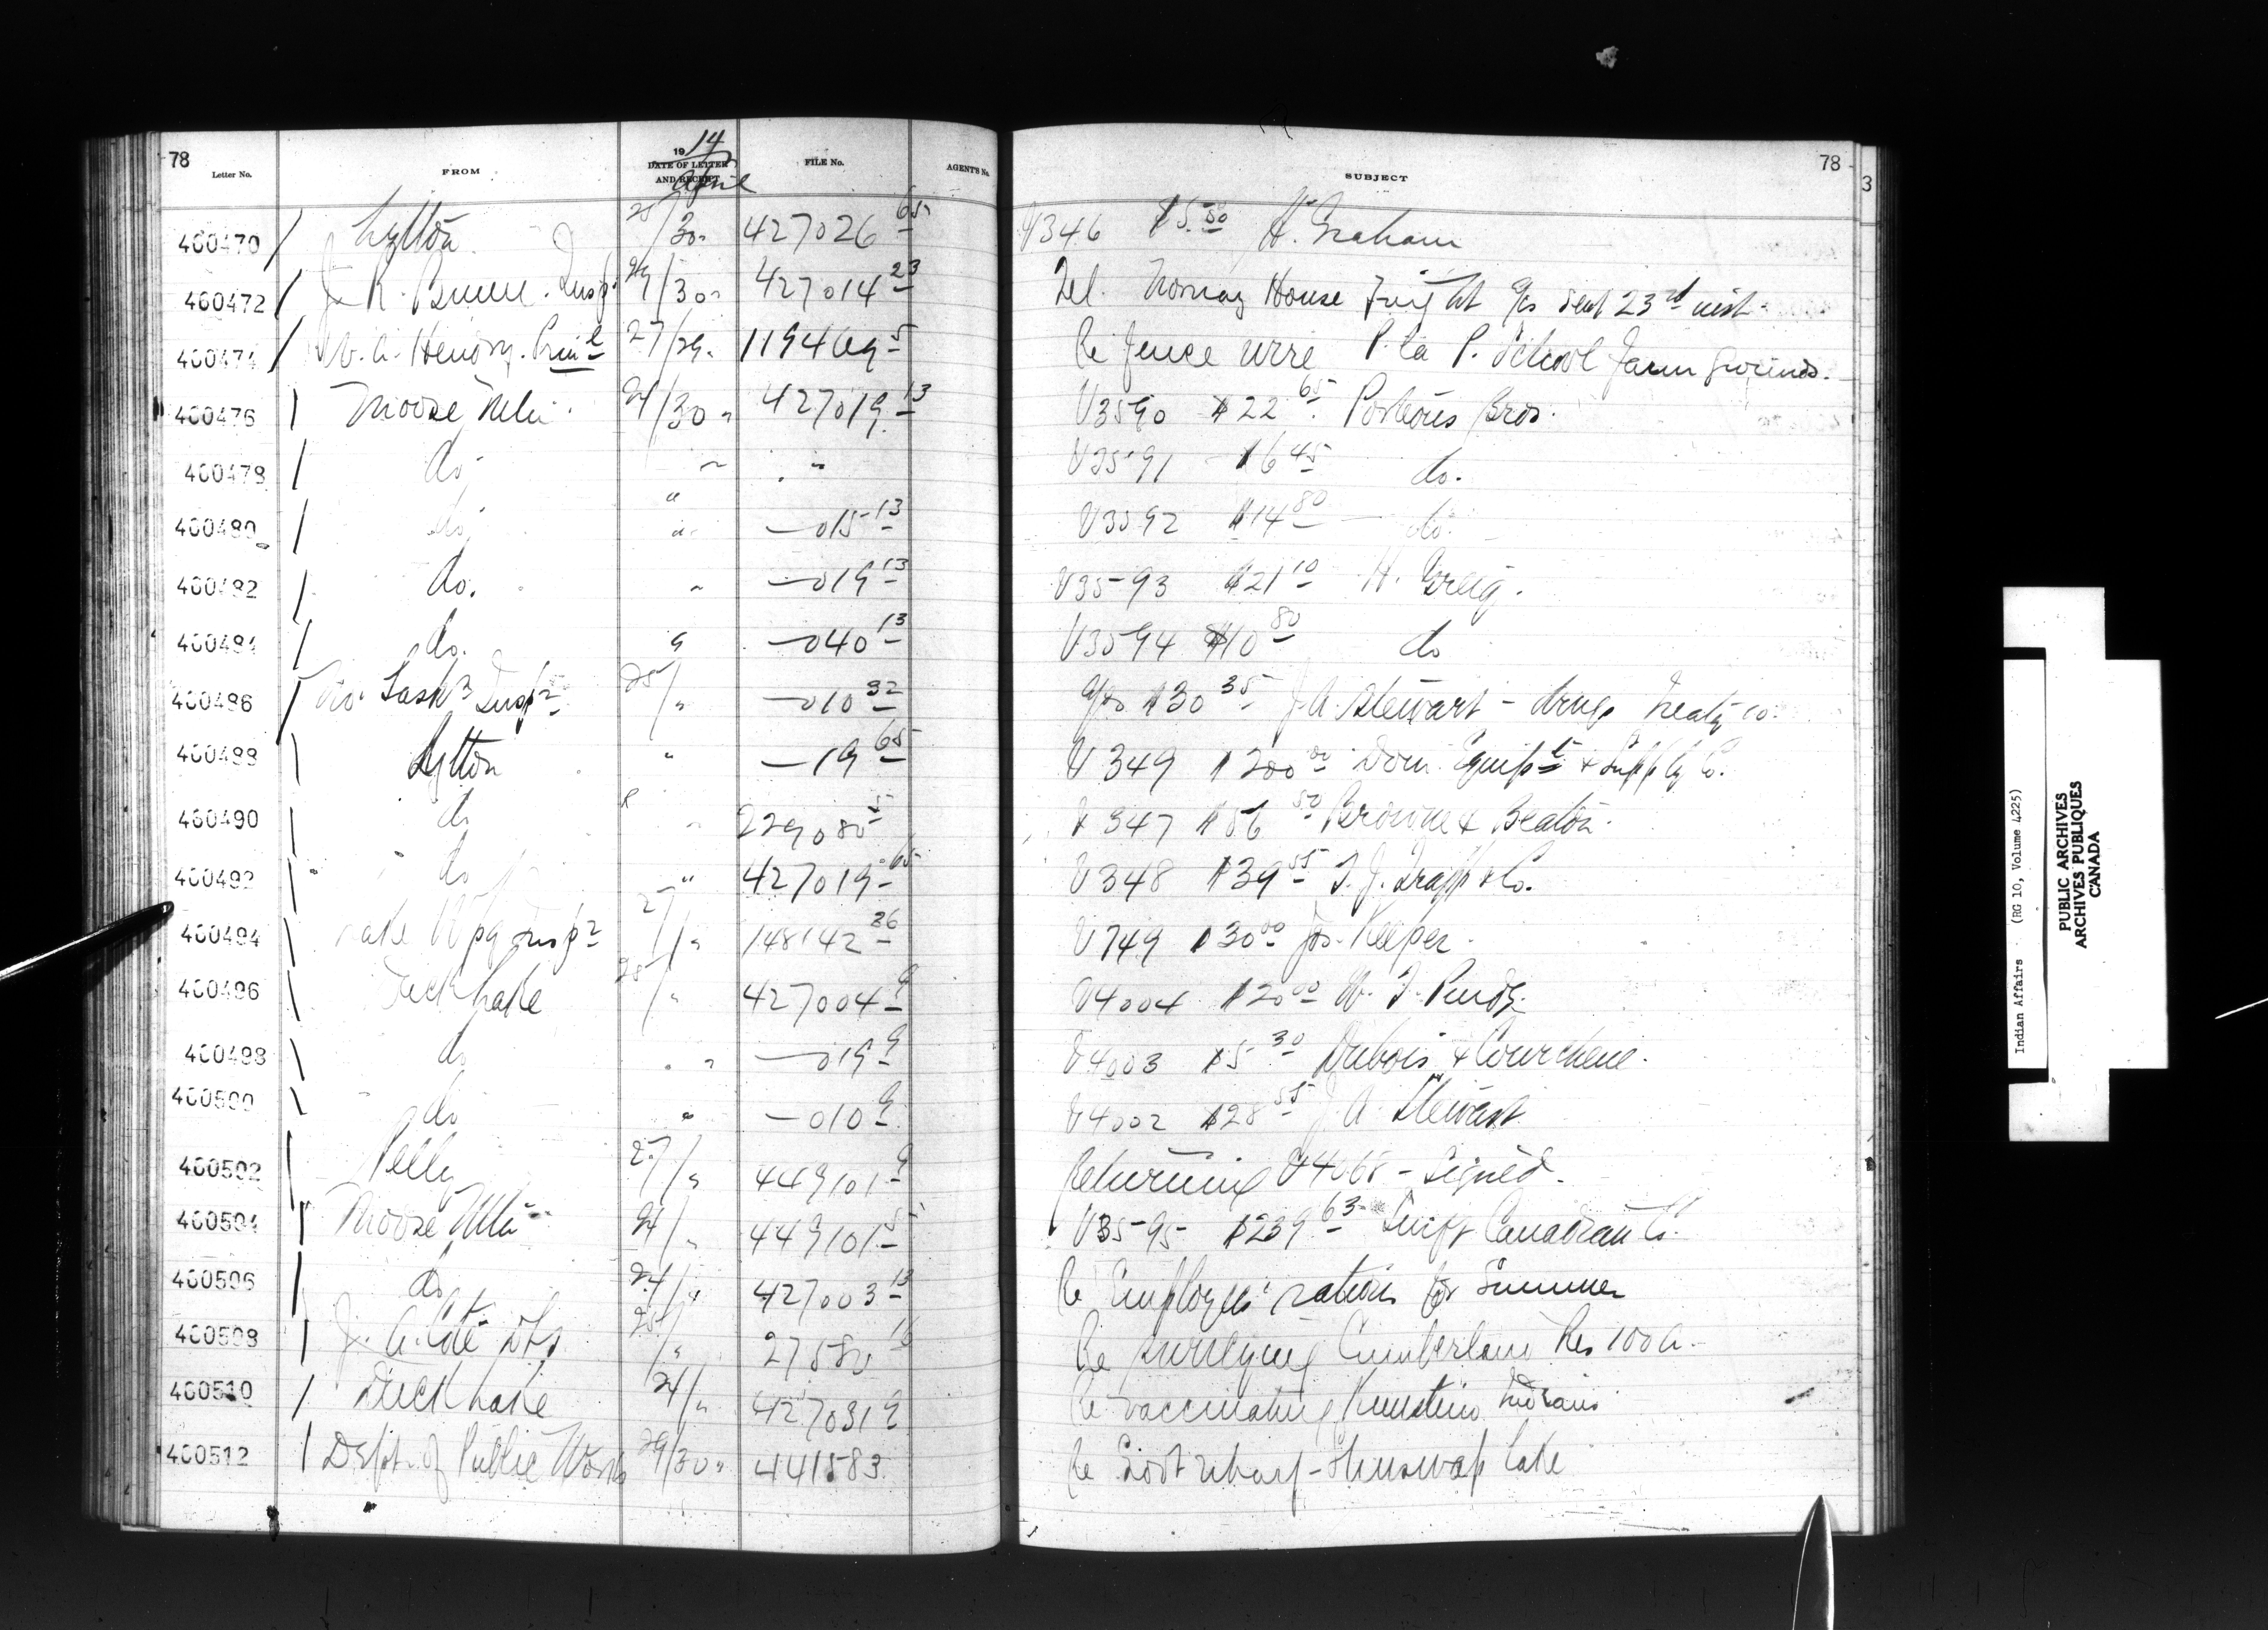 78
Letter No. FROM 1914 DATE OF LETTER AND RECEIPT April FILE No. AGENT'S No. SUBJECT 78
3
400470 / Lytton 25/30 " 427026 65 V346 $5.50 H. Graham
400472 / J. R. Bunn. Insp. 29/30 " 427014 23 Tel. Norway House Freight a/cs sent 23rd inst.
400474 / W. A. Hendry. Prinl 27/29 " 119469 5 Re fence wire P. la P. School farm grounds.
400476 / Moose Mtn. 24/30 " 427019 13 V3590 $22 65 Porteous Bros.
400478 / do " " V3591 $6 45 do.
400480 / do " — 015 13 V3592 $14 80 do.
400482 / do. " — 019 13 V3593 $21 10 H. Greig.
400484 / do. " — 040 13 V3594 $10 80 do
400486 / No. Sask n Inspr 25/" — 010 32 a/c $30 35 J. A. Stewart – drugs Treaty
400488 / Lytton " — 19 65 V349 $200 00 Dom. Equipt & Supply Co.
400490 / do " 229080 5 V347 $56 50 Browne & Beaton
400492 / do " 427019 65 V348 $39 55 T. J. Trapp & Co.
400494 / Lake Wpg Inspr 27/" 148142 36 V749 $30 00 Jos. Keeper.
400496 / Duck Lake 25/" 427004 9 V4004 $20 00 W. J. Purdy
400498 / do " — 019 9 V4003 $5 30 Dubois & Courchene.
400500 / do " — 010 9 V4002 $28 55 J. A. Stewart
400502 / Pelly 27/" 449101 9 Returning V4068 – signed.
400504 / Moose Mtn 24/" 449101 5 V3595 $239 63 Swift Canadian Co.
400506 / do 24/" 427003 13 Re Employees' rations for Summer
400508 / J. A. Côté DLS 25/" 27580 16 Re surveying Cumberland Res 100A.
400510 / Duck Lake 24/" 427031 9 Re vaccinating Indians
400512 / Dept. of Public Works 29/30 " 441583 Re wharf – Shuswap Lake
Indian Affairs (RG 10, Volume 4225)
PUBLIC ARCHIVES
ARCHIVES PUBLIQUES
CANADA